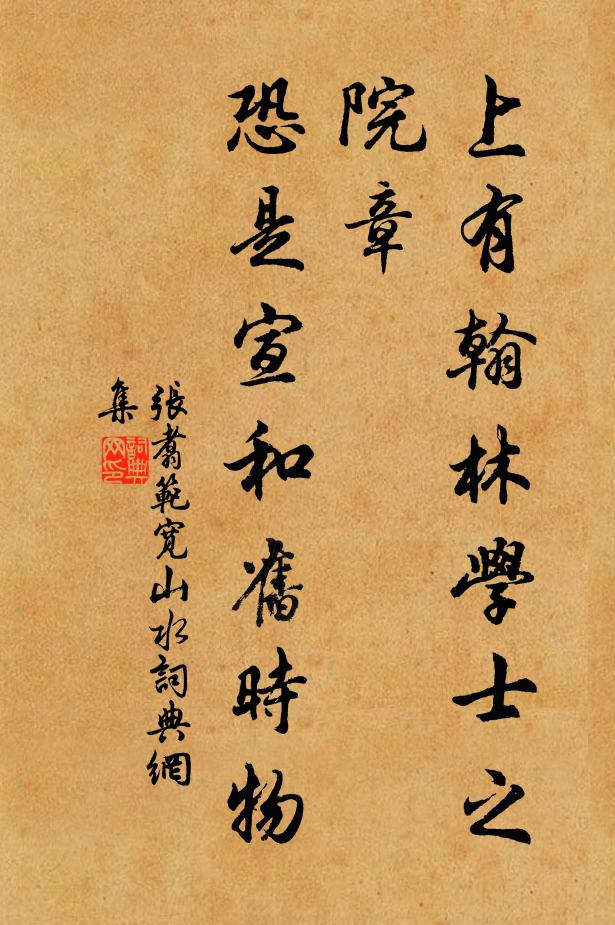 上有翰林學士之
院章
恐是宣和舊時物
張翥範寬山水詞典網
集
詞典
网印